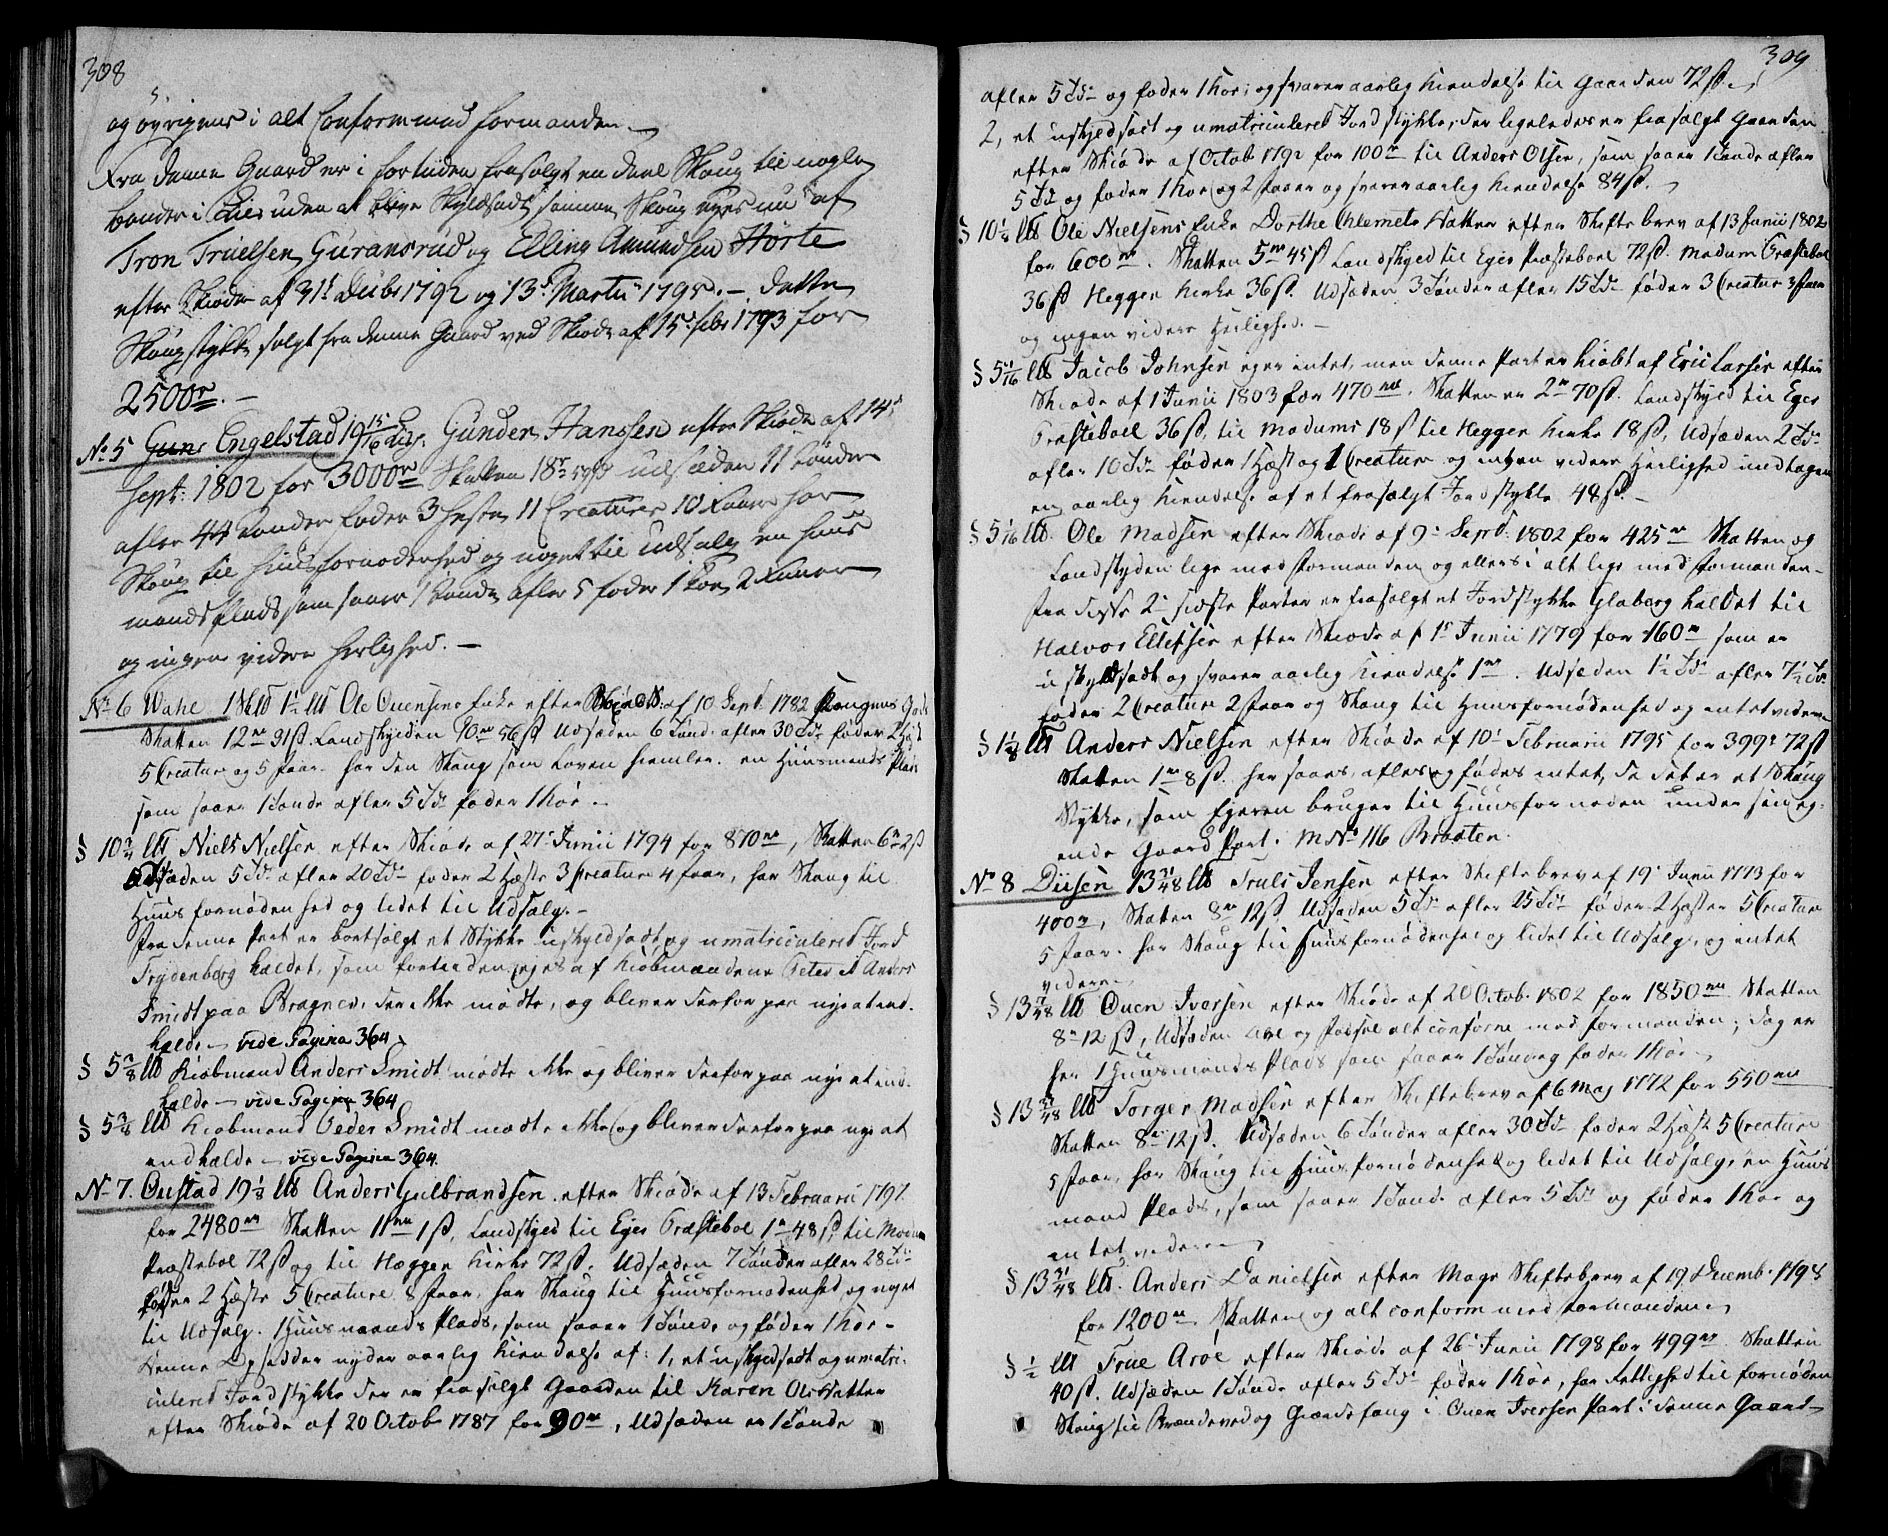 308
og øvrigens i alt Conform med Formanden. —
Fra denne Gaard er i fortiiden frasolgt en deel Skoug til nogle
bønder i Lier uden at blive Skyldsadt, samme Skoug eyes nu af
Tron Truelsen Guransrud og Elling Amundsen Hørte
efter Skiøder af 31t Decbr 1792 og 13d Martii 1795. — dette
Skougstykke solgt fra denne Gaard ved Skiøde af 15d febr 1793 for
2500r. —
No 5 Engelstad 19 15/16 Lispd. Gunder Hanssen efter Skiøde af 14d
Sept: 1802 for 3000r Skatten 18r udsæden 11 tønder
afler 44 tønder føder 3 heste 11 Creaturer 10 faaer har
Skoug til huusfornødenhed og noget til udsalg en huus
mands plads som saaer 1 tønde afler 5 føder 1 koe 2 faaer
og ingen videre herlighed. —
No 6 Wahe 1 Sk℔ 1½ L℔ Ole Ouensens Enke efter Skiøde af 10 Sept. 1782 Kongens Gods
Skatten 12rd 31ß Landskylden 90rd 56ß Udsæden 6 Tønd. afler 30 Tdr føder 2 Hæst
5 Creature og 5 faar. har den Skoug som Loven hiemler. en Huusmands Plads
som saaer 1 Tønde afler 5 Tdr føder 1 Koe. —
§ 10¾ L℔ Niels Nielsen efter Skiøde af 27d Junii 1794 for 870rd, Skatten 6rd 2ß
Udsæden 5 Tdr afler 20 Tdr føder 2 Hæste 3 Creature 4 faar, har Skoug til
Huusfornødenhed og lidet til Udsalg. —
Fra denne Part er bortsolgt et Stykke uskyldsadt og umatriculeret Jord
Frydenberg kaldet, som fortiiden eyes af Kiøbmændene Peter & Anders
Smidt paa Bragnes, der ikke mødte, og bliver derfor paa nye at ind-
kalde — vide Pagina 364
§ 5⅜ L℔ Kiøbmand Anders Smidt mødte ikke og bliver derfor paa nye at ind-
kalde — vide Pagina 364
§ 5⅜ L℔ Kiøbmand Peder Smidt mødte ikke og bliver derfor paa nye at
indkalde — vide Pagina 364.
No 7. Oustad 19½ L℔ Anders Gulbrandsen efter Skiøde af 13 Februarii 1797.
for 2480rd Skatten 11rd 1ß, Landskyld til Eger Præsteboel 1rd 48ß, til Modum
Præsteboel 72ß og til Hegger Kirke 72ß. Udsæden 7 Tønder afler 28 Tdr
føder 2 Hæste 5 Creature 8 faar, har Skoug til Huusfornødenhed og noget
til Udsalg. 1 Huusmands Plads, som saaer 1 Tønde og føder 1 Koe —
Denne Opsidder nyder aarlig Kiendelse af: 1, et uskyldsadt og umatri-
culeret Jordstykke der er frasolgt Gaarden til Karen Olesdatter
efter Skiøde af 20 Octobr 1787 for 90rd, Udsæden er 1 Tønde
309
afler 5 Tdr og føder 1 Koe; og svarer aarlig Kiendelse til Gaarden 72ß. —
2, et uskyldsadt og umatriculeret Jordstykke, der ligeledes er frasolgt Gaarden
efter Skiøde af Octob 1792 for 100rd til Anders Olsen, som saaer 1 Tønde afler
5 Tdr og føder 1 Koe og 2 faar og svarer aarlig Kiendelse 84ß. —
§ 10⅛ L℔ Ole Nielsens Enke Dorthe Clemets Datter efter Skiftebrev af 13 Junii 1802
for 600rd. Skatten 5rd 45ß Landskyld til Eger Præsteboel 72ß. Modum Præsteboel
36ß Hegger Kirke 36ß. Udsæden 3 Tønder afler 15 Tdr føder 3 Creatur 3 faar
og ingen videre Herlighed. —
§ 5 1/16 L℔ Jacob Johnsen eyer intet, men denne Part er kiøbt af Eric Larsen efter
Skiøde af 1 Junii 1803 for 470rd. Skatten er 2rd 70ß. Landskyld til Eger
Præsteboel 36ß, til Modums 18ß til Hegger Kirke 18ß, Udsæden 2 Tdr
afler 10 Tdr føder 1 Hæst og 1 Creature og ingen videre Herlighed undtagen
en aarlig Kiendelse af et frasolgt Jordstykke 48ß. —
§ 5 1/16 L℔. Ole Madsen efter Skiøde af 9d Septr 1802 for 425rd Skatten og
Landskylden lige med Formanden og ellers i alt lige med Formanden —
Fra disse 2de sidste Parter er frasolgt et Jordstykke Glaberg kaldet til
Halvor Ellefsen efter Skiøde af 1d Junii 1779 for 160rd som er
uskyldsadt og svarer aarlig Kiendelse 1rd. Udsæden 1½ Tdr afler 7½ Tdr
føder 2 Creatur 2 faar og Skoug til Huusfornødenhed og intet videre
§ 1⅛ L℔ Anders Nielsen efter Skiøde af 10d Februarii 1795 for 399rd 72ß
Skatten 1rd 8ß. her saaes, afles og fødes intet, da det er et Skoug
Stykke, som Eyeren bruger til Huusfornøden under sin eg-
ende Gaard Part: M No 116 Braaten.
No 8 Diisen 13 31/48 L℔ Truls Jensen efter Skiftebrev af 19d Junii 1773 for
400rd, Skatten 8rd 12ß Udsæden 5 Tdr afler 25 Tdr føder 2 Hæster 5 Creature
5 faar. har Skoug til Huusfornødenhed og lidet til Udsalg, og intet
videre —
§ 13 7/48 L℔ Ouen Iversen efter Skiøde af 20 Octobr 1802 for 1850rd Skatten
8rd 12ß, Udsæden Avl og fødsel alt conforme med Formanden; dog er
her 1 Huusmands Plads som saaer 1 Tønde og føder 1 Koe —
§ 13 31/48 L℔ Torger Madsen efter Skiftebrev af 6 Maj 1772 for 550rd
Skatten 8rd 12ß. Udsæden 6 Tønder afler 30 Tdr føder 2 Hæst 5 Creature
5 faar, har Skoug til Huusfornødenhed og lidet til Udsalg, en Huus
mand Plads, som saaer 1 Tønde afler 5 Tdr og føder 1 Koe og
intet videre —
§ 13 31/48 L℔. Anders Danielsen efter Mage Skiftebrev af 19 Decemb. 1798
for 1200rd Skatten og alt conform med Formanden —
§ ½ L℔ True Aroe efter Skiøde af 26d Junii 1798 for 499rd Skatten
40ß. Udsæden 1 Tønde afler 5 Tdr føder 1 Koe, har Rettighed til fornøden
Skoug til Brændeved og Giærdefang i Ouen Iversen Part i denne Gaard —